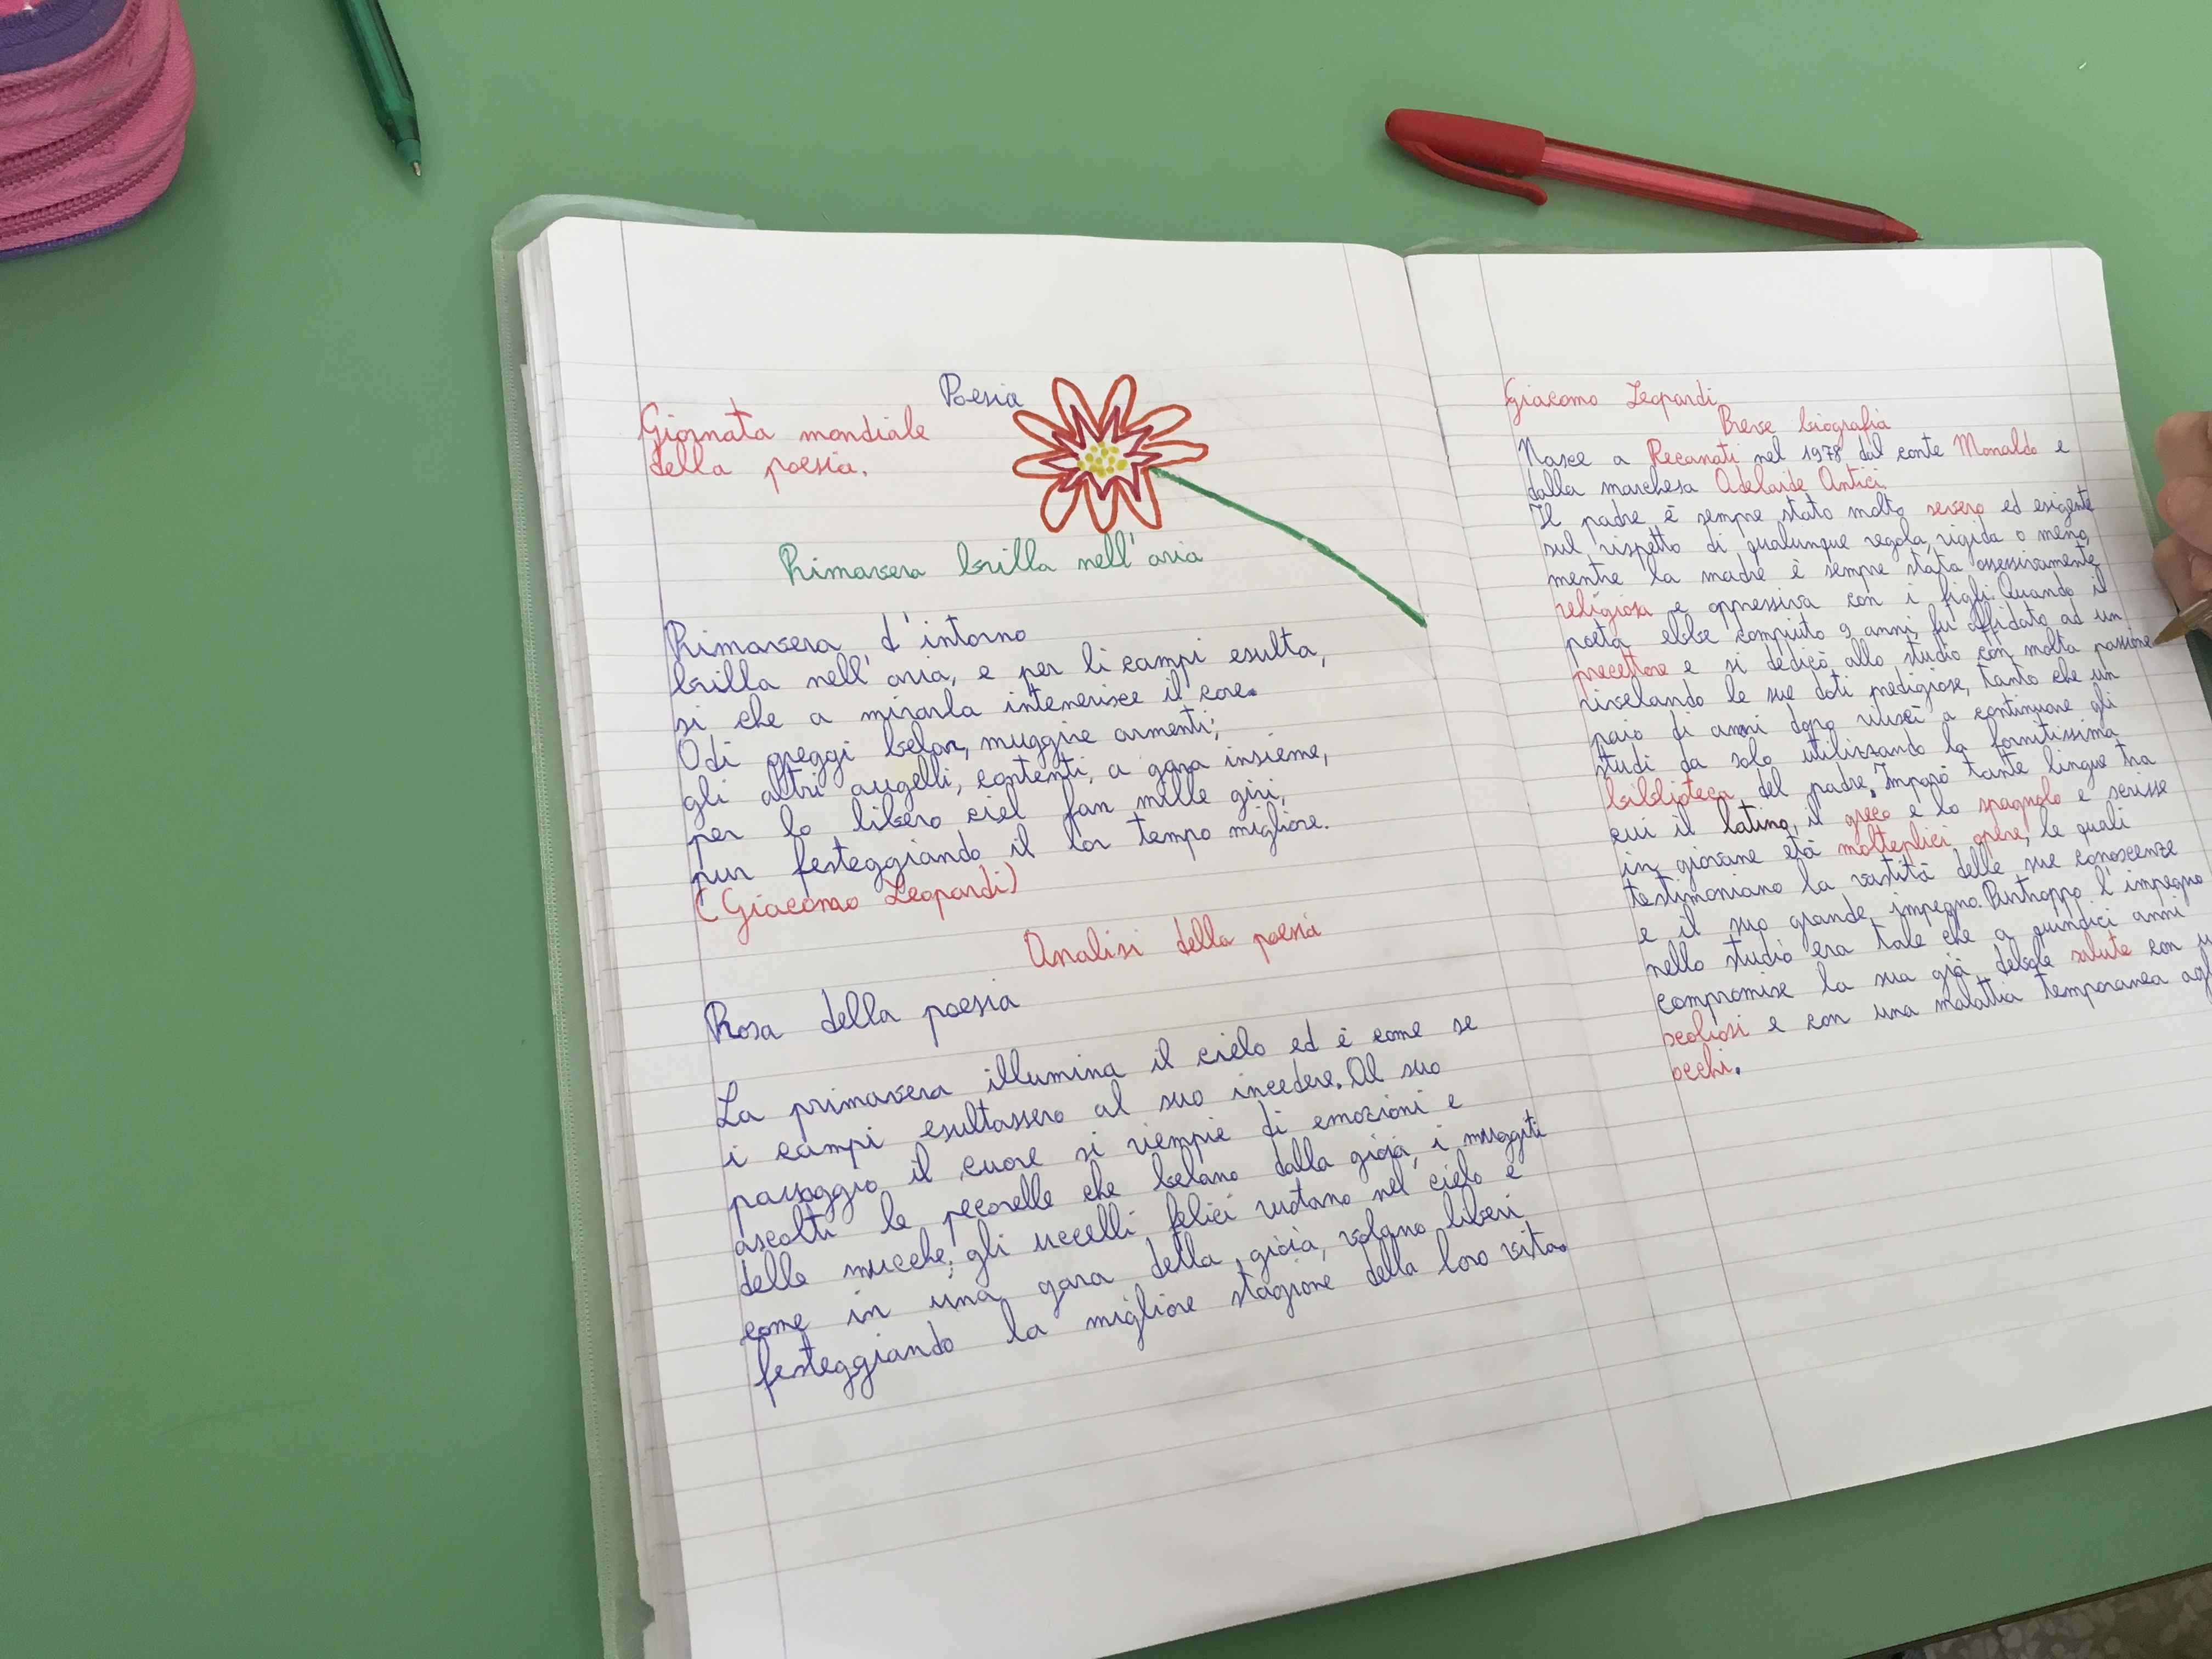 Poesia
Giornata mondiale
della poesia.
Primavera brilla nell'aria
Primavera d'intorno
brilla nell'aria, e per li campi esulta,
sì che a mirarla intenerisce il core.
Odi greggi belar, muggire armenti;
gli altri augelli, contenti, a gara insieme,
per lo libero ciel fan mille giri,
pur festeggiando il lor tempo migliore.
(Giacomo Leopardi)
Analisi della poesia
Rosa della poesia
La primavera illumina il cielo ed è come se
i campi esultassero al suo incedere. Al suo
passaggio il cuore si riempie di emozioni e
ascolti le pecorelle che belano dalla gioia, i muggiti
delle mucche; gli uccelli felici ruotano nel cielo e
come in una gara della gioia, volano liberi
festeggiando la migliore stagione della loro vita.
Giacomo Leopardi
Breve biografia
Nasce a Recanati nel 1978 dal conte Monaldo e
dalla marchesa Adelaide Antici.
Il padre è sempre stato molto severo ed esigente
sul rispetto di qualunque regola, rigida o meno,
mentre la madre è sempre stata ossessivamente
religiosa e oppressiva con i figli. Quando il
poeta ebbe compiuto 9 anni, fu affidato ad un
precettore e si dedicò allo studio con molta passione
rivelando le sue doti prodigiose, tanto che un
paio di anni dopo riuscì a continuare gli
studi da solo utilizzando la fornitissima
biblioteca del padre. Imparò tante lingue tra
cui il latino, il greco e lo spagnolo e scrisse
in giovane età molteplici opere, le quali
testimoniano la vastità delle sue conoscenze
e il suo grande impegno. Purtroppo l'impegno
nello studio era tale che a quindici anni
compromise la sua già debole salute con
scoliosi e con una malattia temporanea
occhi.